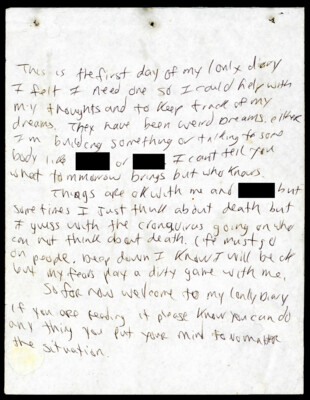 This is the first day of my lonly diary
I felt I need one so I could help with
my thoughts and to keep track of my
dreams. They have been weird dreams. either
I'm building something or talking to some
body like or I cant tell you
what tommorow brings but who knows.
Things are ok with me and but
sometimes I just think about death but
I guess with the cronavirus going on who
can not think about death. Life must go
on people. Deep down I know I will be ok
but my fears play a duty game with me.
So for now welcome to my lonly Diary
if you are reading it please know you can do
any thing you put your mind to no matter
the situation.